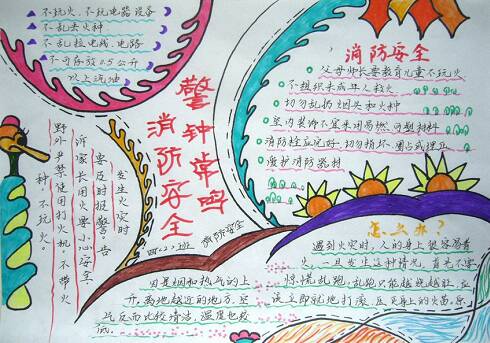 不玩火、不玩电器设备
不乱丢火种
不乱拉电线、电路
不可存放0.5公升
以上汽油
消防安全
父母师长要教育儿童不玩火
不组织未成年人救火
切勿乱扔烟头和火种
室内装修不宜采用易燃可塑材料
消防栓应完好，切勿损坏、圈占或埋压
爱护消防器材
警钟常鸣
消防安全
发生火灾时
要及时报警。告
诉家长用火要小心安全
野外严禁使用打火机，不带火
种、不玩火。
消防安全
因是烟和热气的上
升，离地越近的地方，空
气反而比较清洁，温度也较
低。
怎么办？
遇到火灾时，人的身上很容易着
火，一旦发生这种情况，首先不要
惊慌乱跑，乱跑只能越烧越旺，应
该立即就地打滚，压灭身上的火苗。